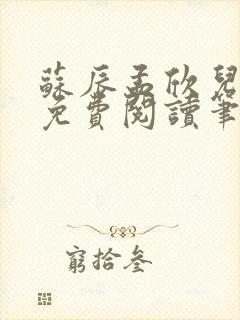 蘇辰孟欣兒
免費閱讀筆
窮拾叁